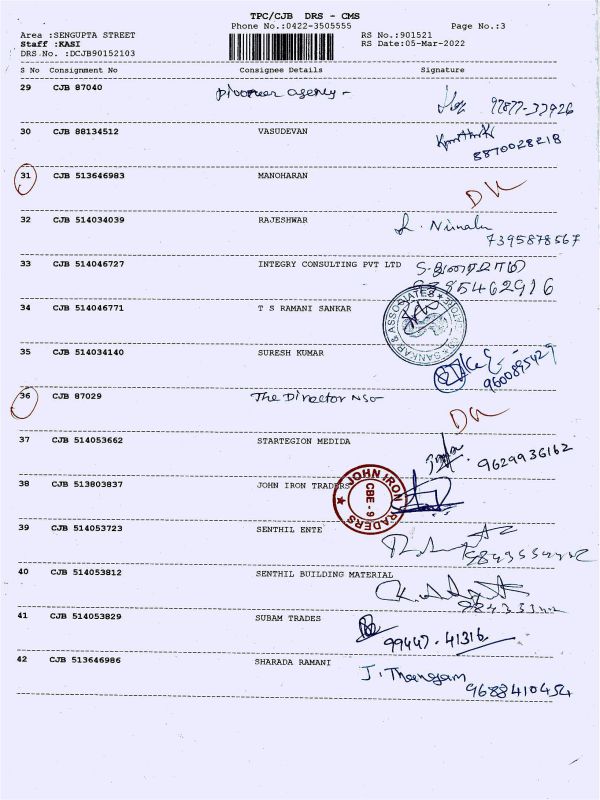 TPC/CJB DRS - CMS
Phone No.:0422-3505555 Page No.:3
Area :SENGUPTA STREET RS No.:901521
Staff :KASI RS Date:05-Mar-2022
DRS No. :DCJB90152103
S No Consignment No Consignee Details Signature
29 CJB 87040 pioneer agency -
97877-37926
30 CJB 88134512 VASUDEVAN
8870028218
31 CJB 513646983 MANOHARAN
32 CJB 514034039 RAJESHWAR
7395878567
33 CJB 514046727 INTEGRY CONSULTING PVT LTD
34 CJB 514046771 T S RAMANI SANKAR
SANKAR & ASSOCIATES
35 CJB 514034140 SURESH KUMAR
9600895429
36 CJB 87029 The Director NSO
37 CJB 514053662 STARTEGION MEDIDA
9629936162
38 CJB 513803837 JOHN IRON TRADERS
JOHN IRON TRADERS
CBE - 9
39 CJB 514053723 SENTHIL ENTE
40 CJB 514053812 SENTHIL BUILDING MATERIAL
41 CJB 514053829 SUBAM TRADES
99447-41316
42 CJB 513646986 SHARADA RAMANI
J. Thangam
9688410454